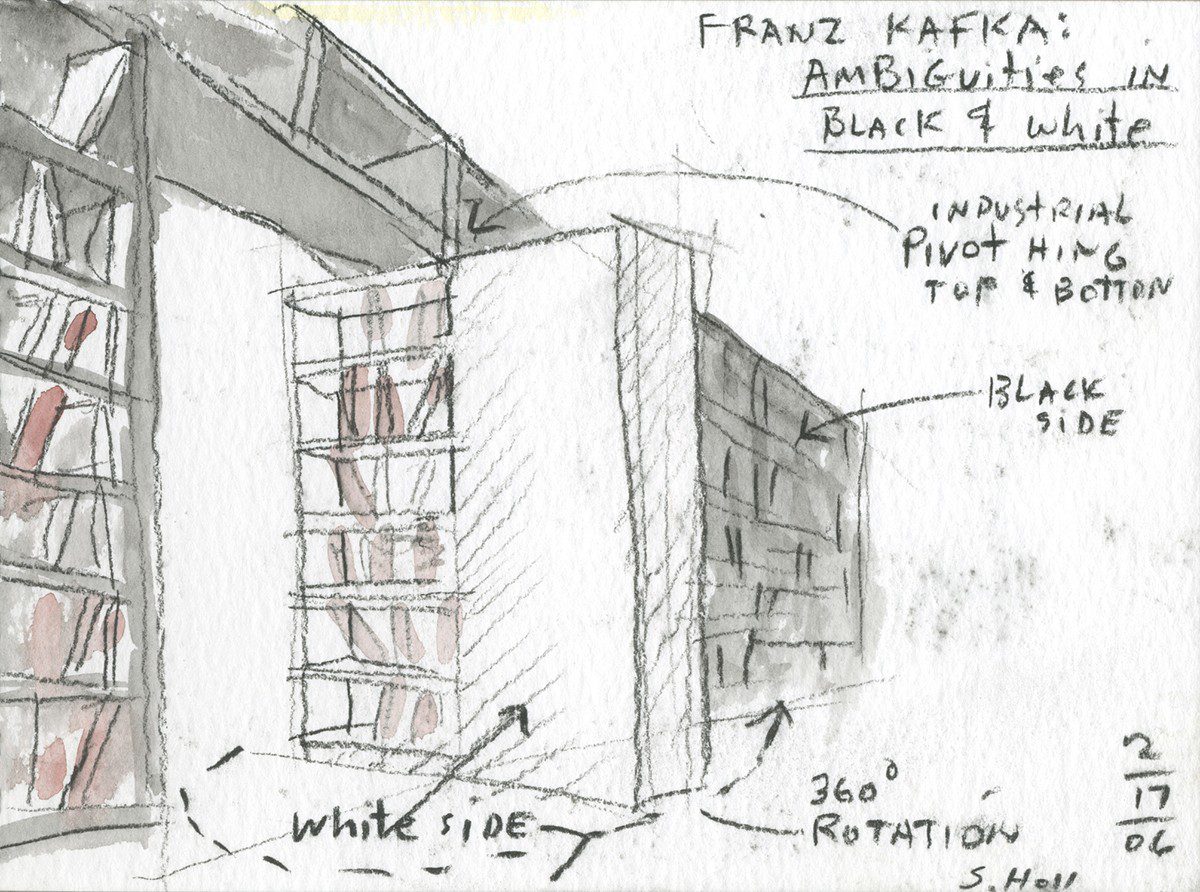 FRANZ KAFKA:
AMBIGUITIES IN
BLACK & WHITE
INDUSTRIAL
PIVOT HING
TOP & BOTTON
BLACK
SIDE
WHITE SIDE
360°
ROTATION
2
17
06
S. Holl